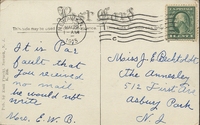 Post Card
It is Par
fault that
you received
no mail
he would not
write
Nore. E.W.B.
Miss J. E. Bechtoldt
The Annesley
512 First Ave
Asbury Park
N. J.